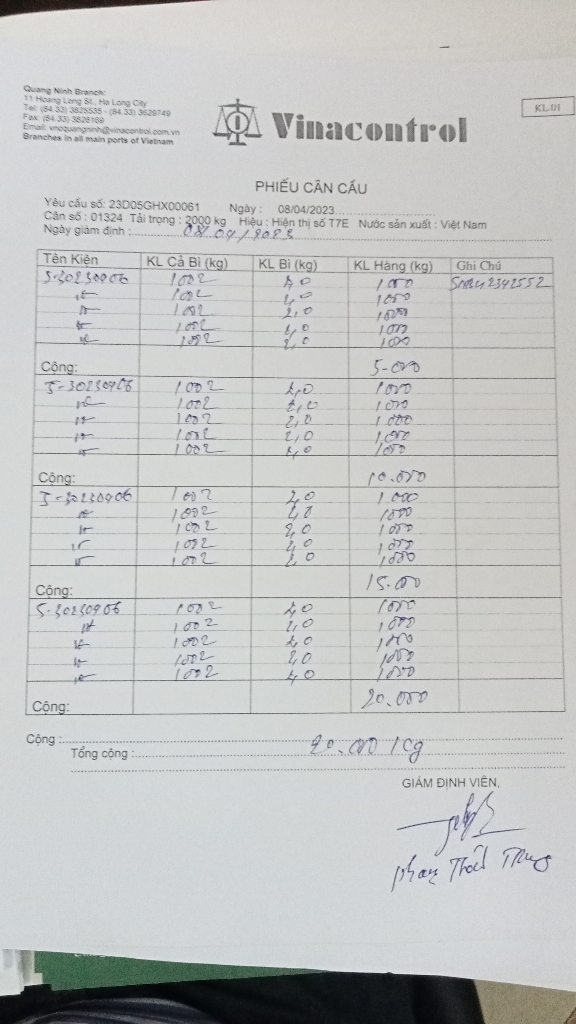 Quang Ninh Branch:
11 Hoang Long St., Ha Long City
Tel: (84.33) 3825535 - (84.33) 3629749
Fax: (84.33) 3828169
Email: vncquangninh@vinacontrol.com.vn
Branches in all main ports of Vietnam
Vinacontrol
KL.01
PHIẾU CÂN CẨU
Yêu cầu số: 23D05GHX00061 Ngày : 08/04/2023
Cân số : 01324 Tải trọng : 2000 kg Hiệu : Hiện thị số T7E Nước sản xuất : Việt Nam
Ngày giám định : 08/04/2023
Tên Kiện KL Cả Bì (kg) KL Bì (kg) KL Hàng (kg) Ghi Chú
S-30230906 1002 2,0 1000
1002 2,0 1000
1002 2,0 1000
1002 2,0 1000
1002 2,0 1000
Cộng: 5.000
S-30230906 1002 2,0 1000
1002 2,0 1000
1002 2,0 1000
1002 2,0 1000
1002 2,0 1000
Cộng: 10.000
S-30230906 1002 2,0 1000
1002 2,0 1000
1002 2,0 1000
1002 2,0 1000
1002 2,0 1000
Cộng: 15.000
S-30230906 1002 2,0 1000
1002 2,0 1000
1002 2,0 1000
1002 2,0 1000
1002 2,0 1000
Cộng: 20.000
Cộng :
Tổng cộng : 20.000 kg
GIÁM ĐỊNH VIÊN,
Phan Trung